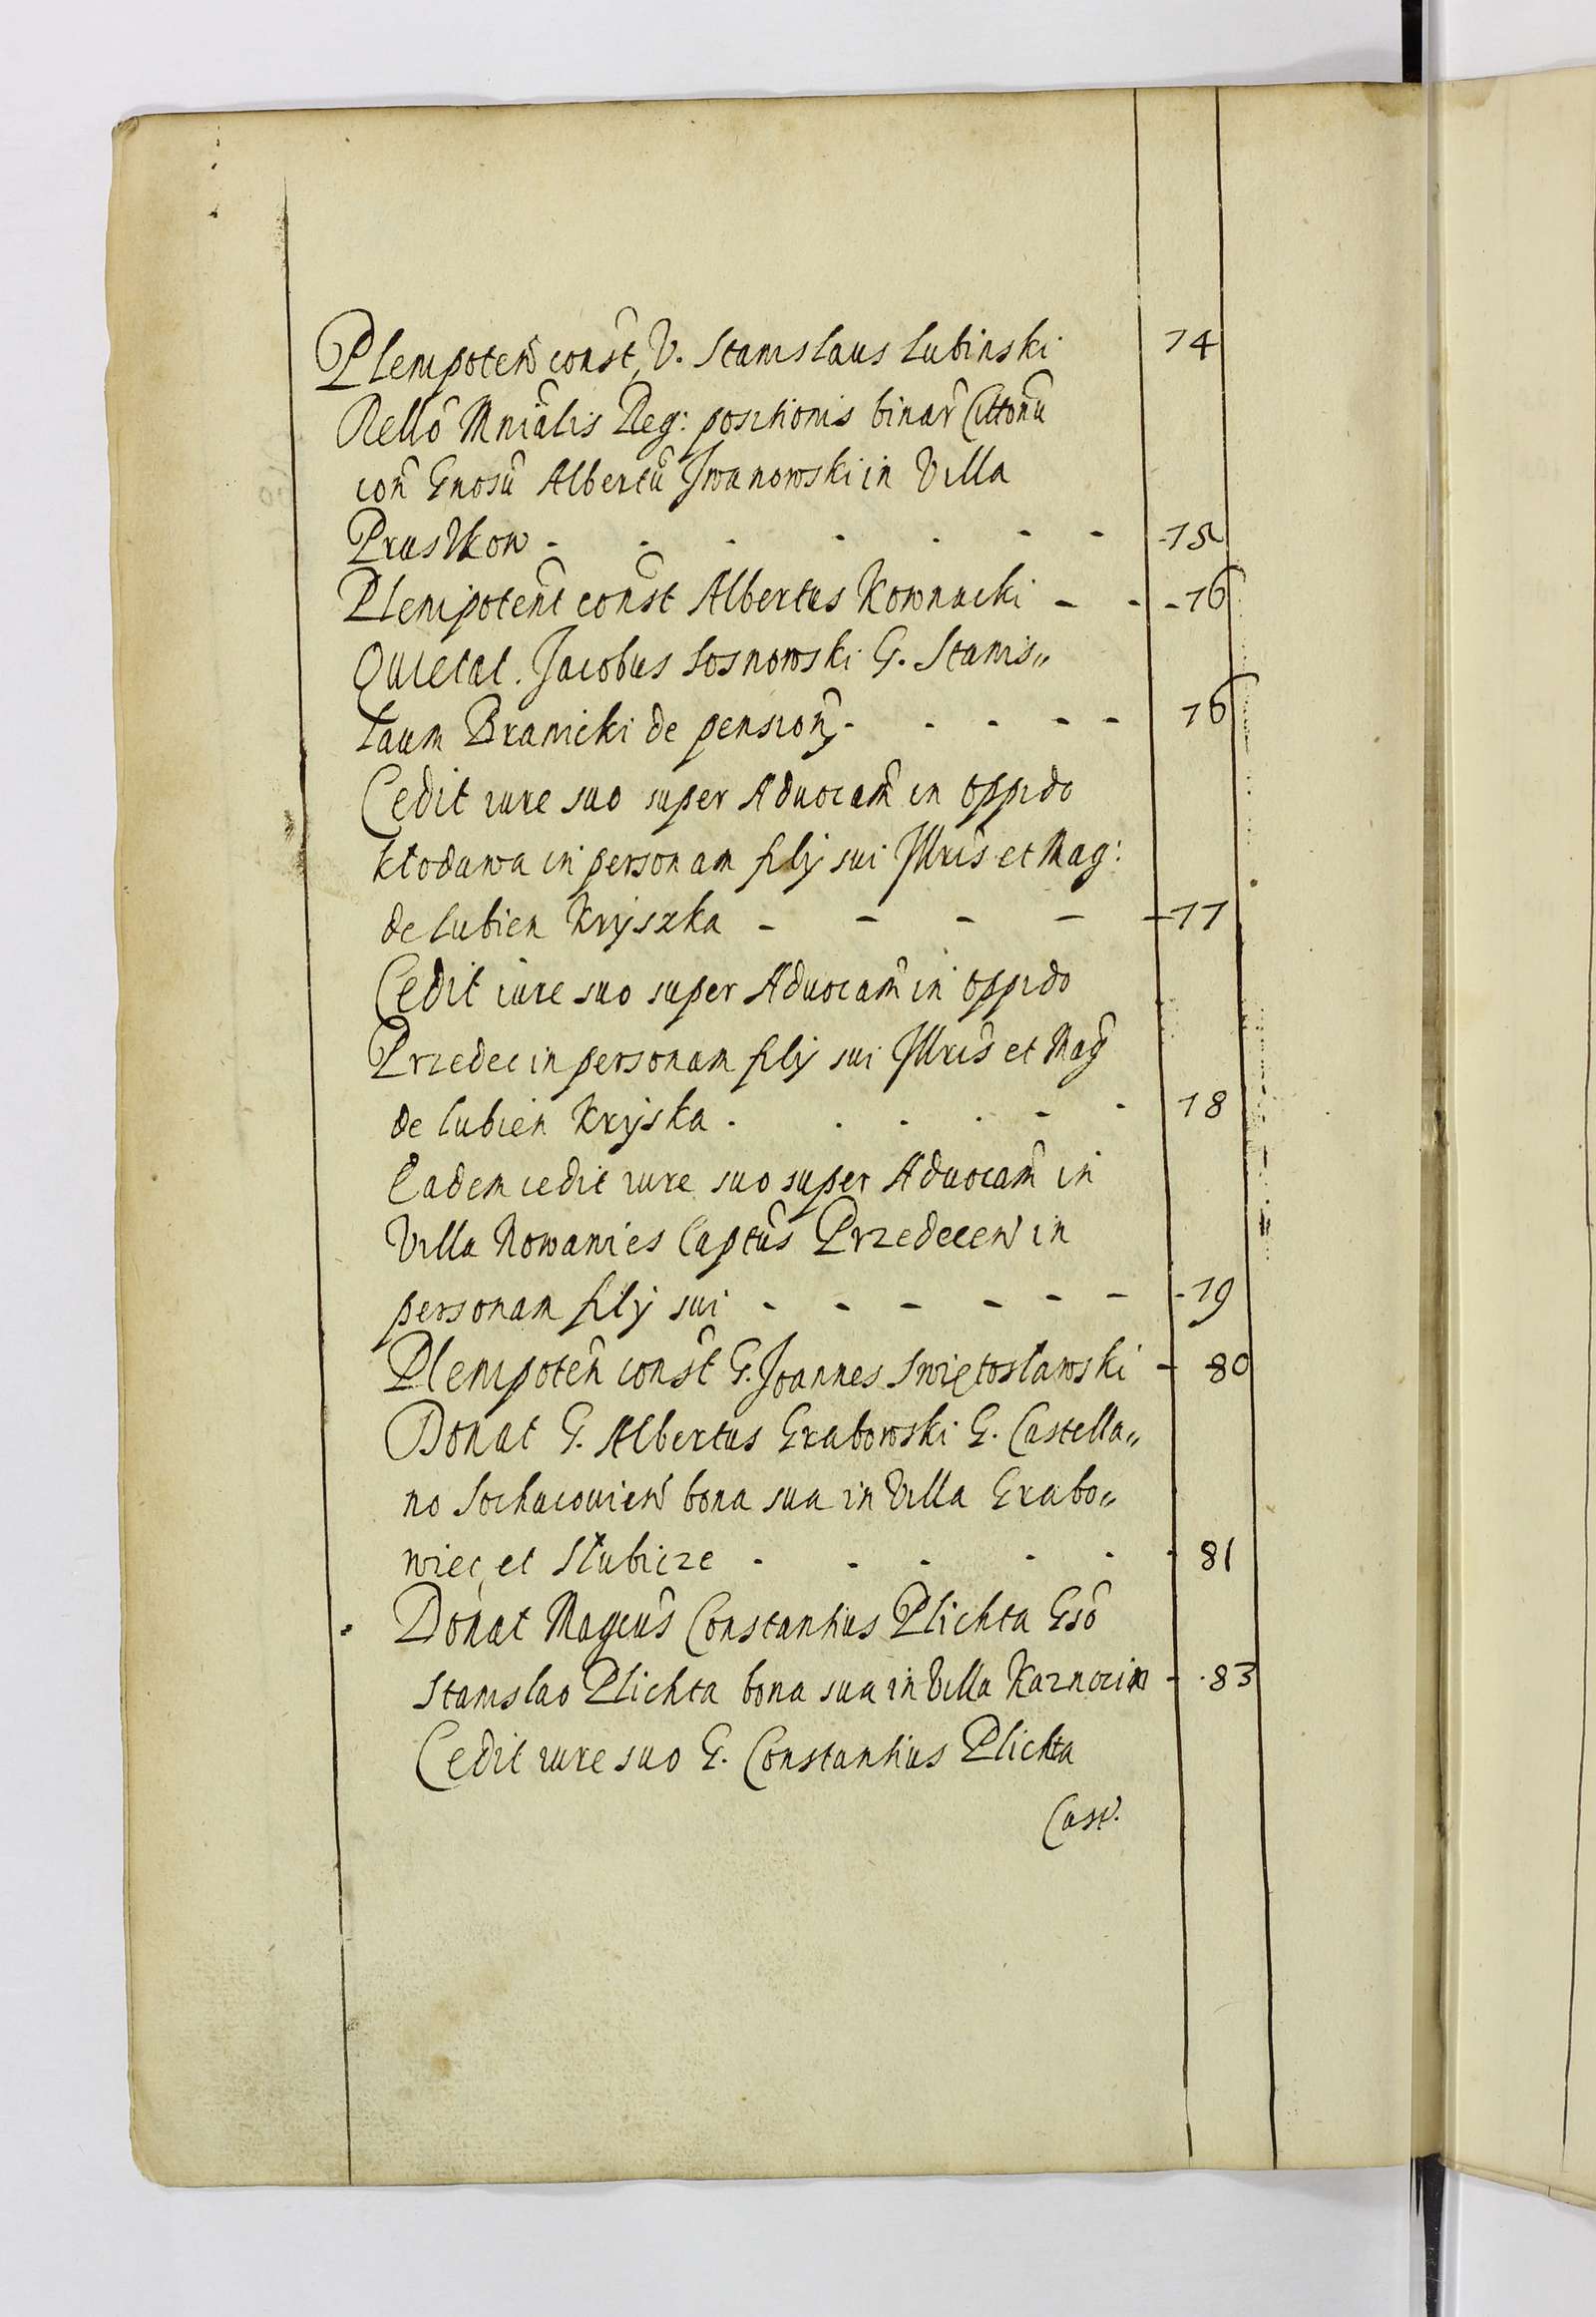 Plenipoten const, V. Stanislaus Lubinski 74
Rello Mnialis Reg: positionis binar Cittonu
con Gnosu Albertu Jwanowski in Villa
Pruszkow - - - - - - - 75
Plenipotent const Albertus Kownacki - - - 76
Quietat. Jacobus Sosnowski G. Stanis„
laum Branicki de pension - - - - - 76
Cedit iure suo super Aduocam in oppido
Kłodawa in personam filÿ sui Jllris et Mag:
de Lubien Kryszka - - - - - 77
Cedit iure suo super Aduocam in oppido
Przedec in personam filÿ sui Jllris et Mag
de Lubien Kryska . . . . - - 78
Eadem cedit iure suo super Aduocam in
Villa Nowawies Captus Przedecen in
personam filÿ sui - - - - - - - 79
Plenipoten const G. Joannes Swiętosławski - 80
Donat G. Albertus Grabowski G. Castella„
no Sochacouien bona sua in Villa Grabo„
wiec, et Słubicze - - - - - - 81
Donat Magcus Constantius Plichta Gso
Stanislao Plichta bona sua in Villa Kaznocin - 83
Cedit iure suo G. Constantius Plichta
Cast.